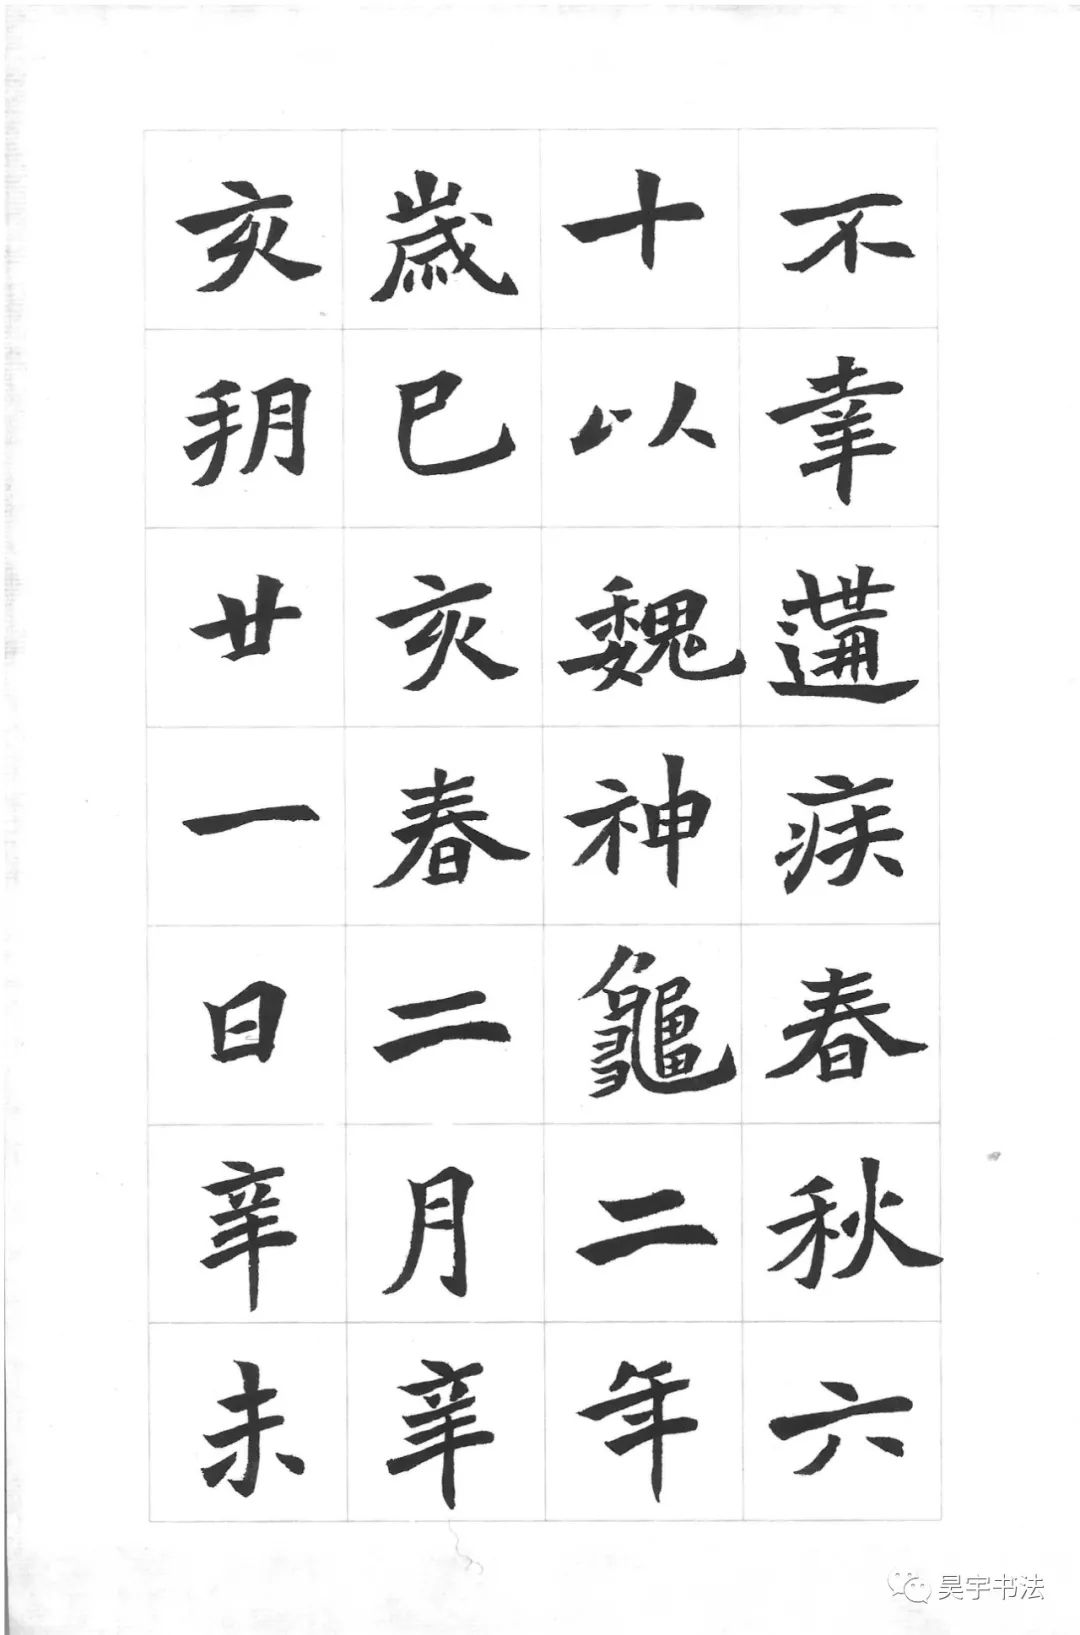 不幸遘疾春秋六
十以魏神龜二年
歲己亥春二月辛
亥朔廿一日辛未
昊宇书法